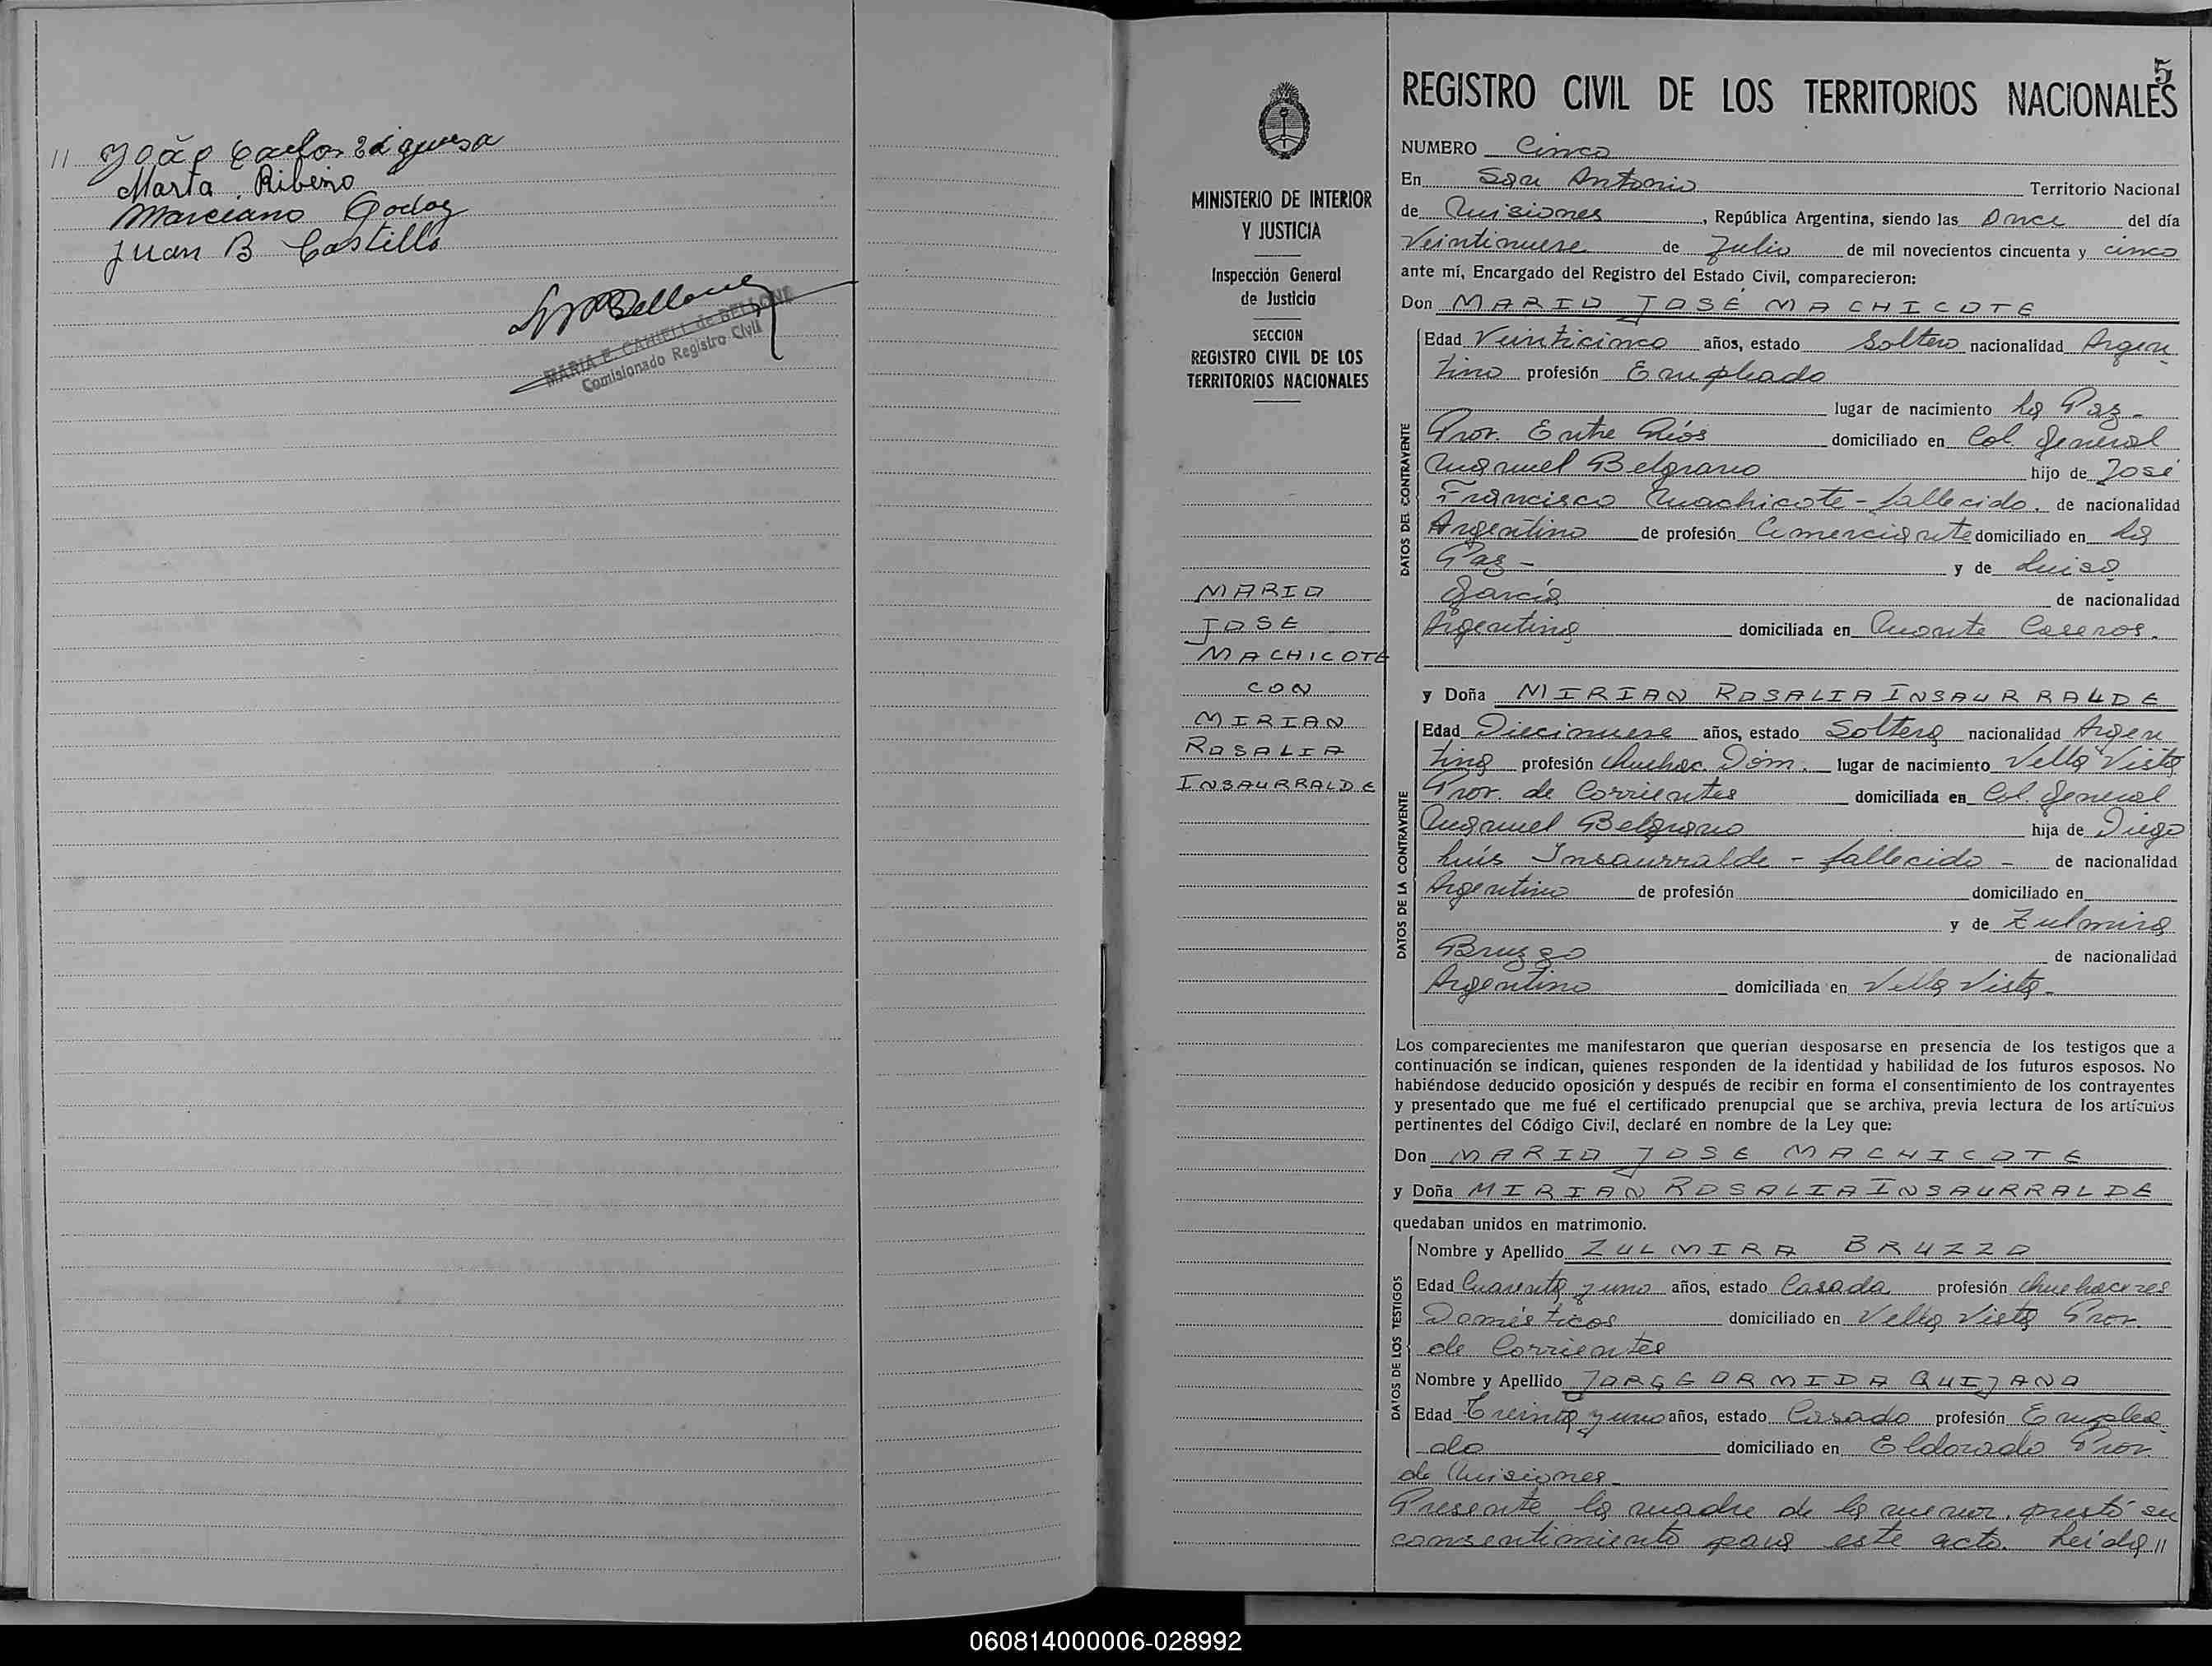 // João Carlos Zá guesa
Marta Ribeiro
Marciano Godoy
Juan B Castillo
MARIA E. CANIELL de BELLONE
Comisionado Registro Civil
MINISTERIO DE INTERIOR
Y JUSTICIA
Inspección General
de Justicia
SECCION
REGISTRO CIVIL DE LOS
TERRITORIOS NACIONALES
MARIO
JOSE
MACHICOTE
CON
MIRIAN
ROSALIA
INSAURRALDE
5
REGISTRO CIVIL DE LOS TERRITORIOS NACIONALES
NUMERO Cinco
En San Antonio Territorio Nacional
de Misiones, República Argentina, siendo las Once del día
Veintinueve de Julio de mil novecientos cincuenta y cinco
ante mí, Encargado del Registro del Estado Civil, comparecieron:
Don MARIO JOSÉ MACHICOTE
DATOS DEL CONTRAYENTE
Edad Veinticinco años, estado Soltero nacionalidad Argen
tino profesión Empleado
lugar de nacimiento La Paz-
Prov. Entre Ríos domiciliado en Col. General
Manuel Belgrano hijo de José
Francisco Machicote - fallecido. de nacionalidad
Argentino de profesión Comerciante domiciliado en La
Paz - y de Luisa
García de nacionalidad
Argentina domiciliada en Monte Caseros.
y Doña MIRIAN ROSALIA INSAURRALDE
DATOS DE LA CONTRAYENTE
Edad Diecinueve años, estado Soltera nacionalidad Argen
tina profesión Quehac. Dom. lugar de nacimiento Vella Vista
Prov. de Corrientes domiciliada en Col. General
Manuel Belgrano hija de Diego
Luís Insaurralde - fallecido - de nacionalidad
Argentino de profesión domiciliado en
y de Zulmira
Bruzzo de nacionalidad
Argentina domiciliada en Vella Vista-
Los comparecientes me manifestaron que querían desposarse en presencia de los testigos que a
continuación se indican, quienes responden de la identidad y habilidad de los futuros esposos. No
habiéndose deducido oposición y después de recibir en forma el consentimiento de los contrayentes
y presentado que me fué el certificado prenupcial que se archiva, previa lectura de los artículos
pertinentes del Código Civil, declaré en nombre de la Ley que:
Don MARIO JOSE MACHICOTE
y Doña MIRIAN ROSALIA INSAURRALDE
quedaban unidos en matrimonio.
DATOS DE LOS TESTIGOS
Nombre y Apellido ZULMIRA BRUZZO
Edad Cuarenta y uno años, estado Casada profesión Quehaceres
Domésticos domiciliado en Vella Vista Prov.
de Corrientes
Nombre y Apellido JORGE ORMIDA QUIJANO
Edad Treinta y uno años, estado Casado profesión Emplea
do domiciliado en Eldorado Prov.
de Misiones-
Presente la madre de la menor, prestó su
consentimiento para este acto. Leída //
060814000006-028992